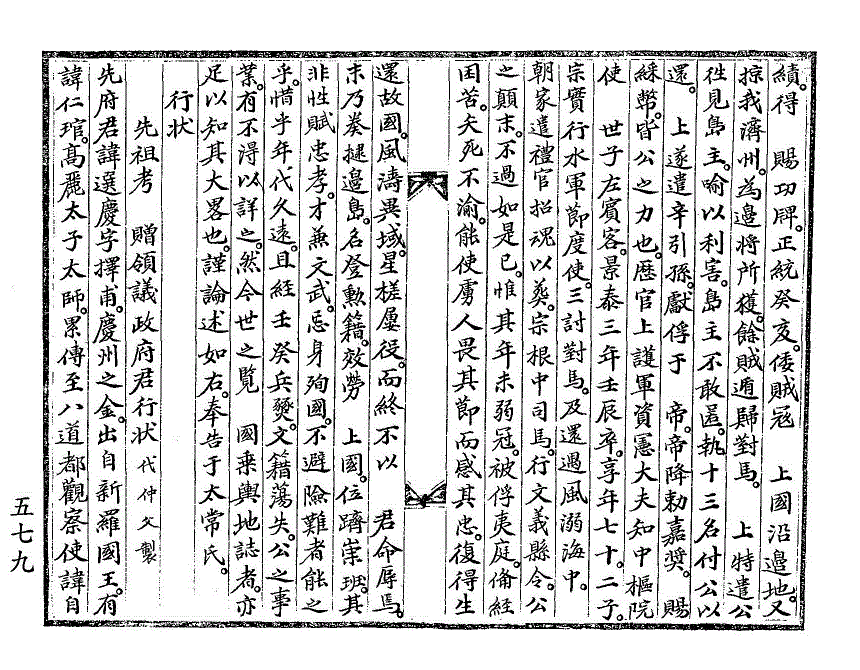 績。得 賜功牌。正統癸亥。倭賊寇 上國沿邊地。又
掠我濟州。為邊將所獲。餘賊遁歸對馬。 上特遣公
徃見島主。喻以利害。島主不敢匿。執十三名付公以
還。 上遂遣辛引孫。獻俘于 帝。帝降勅嘉奬。賜
綵幣。皆公之力也。歷官上護軍資憲大夫知中樞院
使 世子左賓客。景泰三年壬辰卒。享年七十。二子。
宗實行水軍節度使。三討對馬。及還遇風溺海中。
朝家遣禮官招魂以葬。宗根中司馬。行文義縣令。公
之顛末。不過如是已。惟其年未弱冠。被俘夷庭。俻經
困苦。矢死不渝。能使虜人畏其節而感其忠。復得生
還故國。風濤異域。星槎屢役。而終不以 君命辱焉。
末乃奏捷邊島。名登勲籍。效勞 上國。位躋崇班。其
非性賦忠孝。才兼文武。忘身殉國。不避險難者能之
乎。惜乎年代久遠。且經壬癸兵燹。文籍蕩失。公之事
業。有不得以詳之。然今世之覽 國乘輿地誌者。亦
足以知其大畧也。謹論述如右。奉告于太常氏。
行状
先祖考 贈領議政府君行状 代仲父製
先府君諱選慶。字擇甫。慶州之金。出自新羅國王。有
諱仁琯。高麗太子太師。累傳至八道都觀察使諱自
五七九